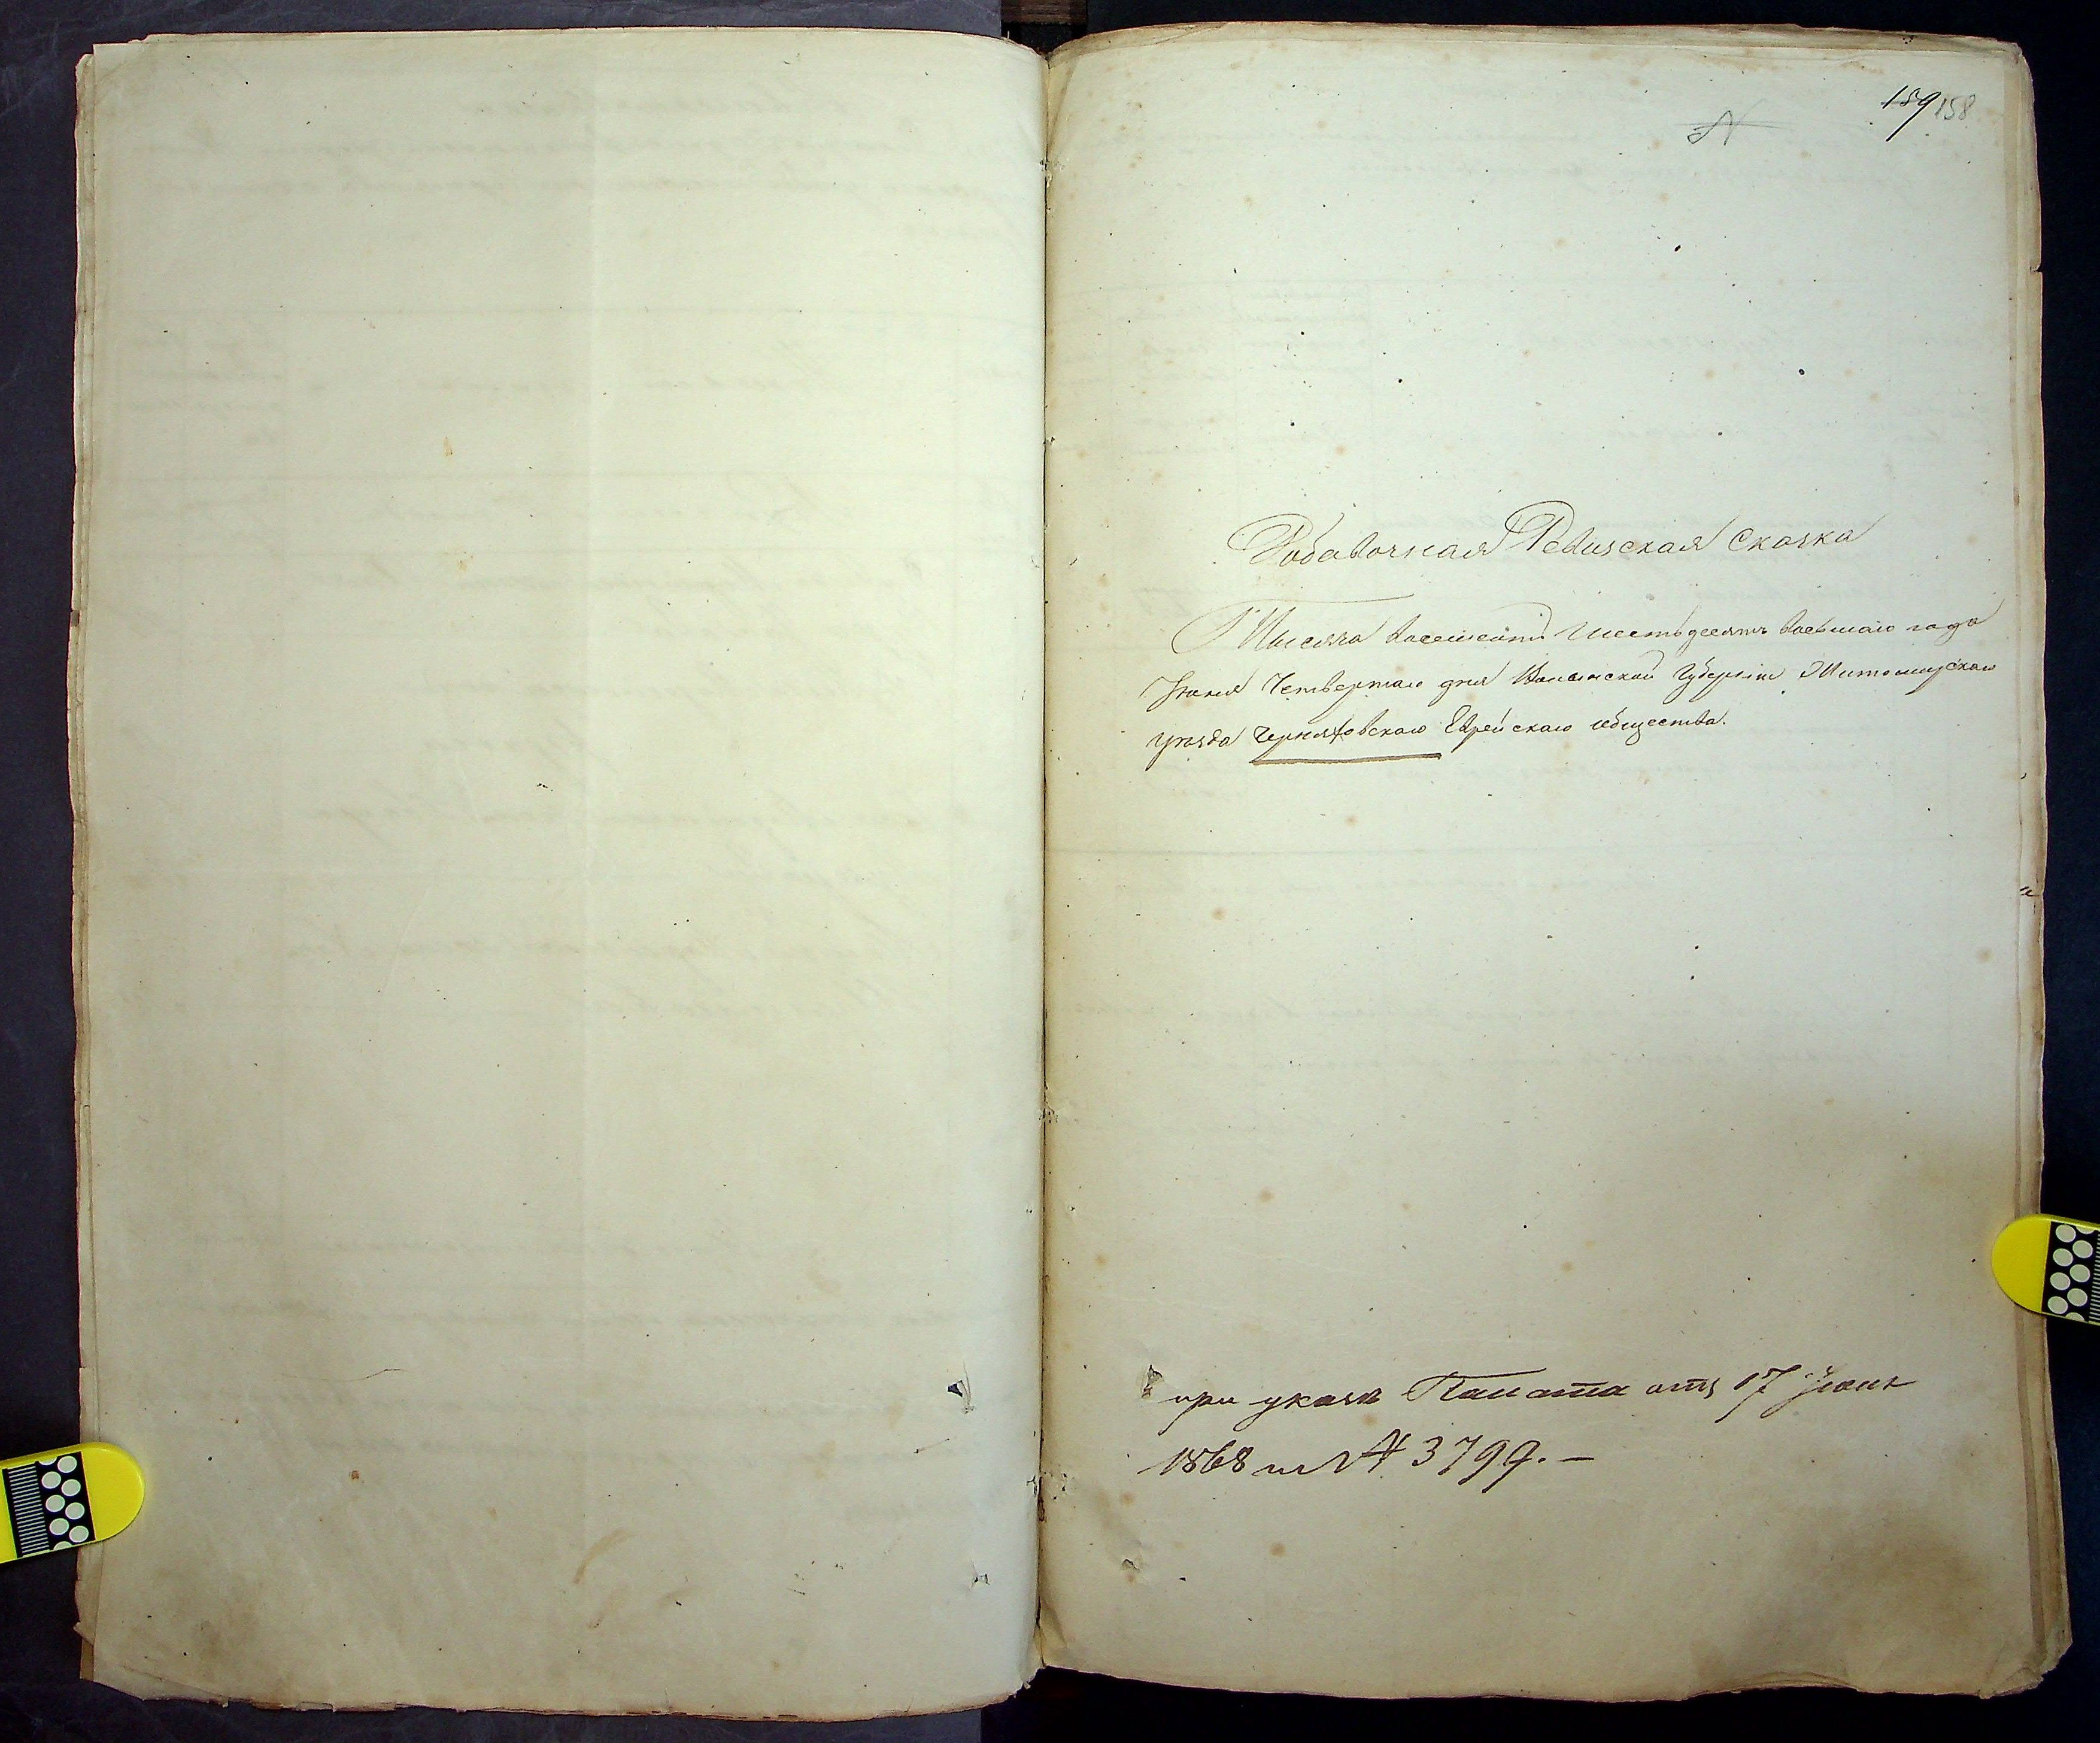 159 158
N
Добавочная Ревизская Сказка
Тысяча восемсотъ шестьдесятъ восьмаго года
Іюня Четвертаго дня Волынской Губерніи Житомирскаго
уѣзда Черняховскаго Еврейскаго общества.
при указѣ Палата отъ 17 Іюня
1868 № 3799.—